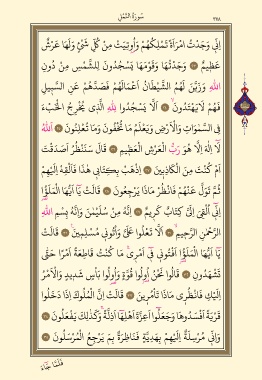 سُورَةُ النَّمْلِ
٣٧٨
اِنّ۪ي وَجَدْتُ امْرَاَةً تَمْلِكُهُمْ وَاُو۫تِيَتْ مِنْ كُلِّ شَيْءٍ وَلَهَا عَرْشٌ
عَظ۪يمٌ ﴿٢٣﴾ وَجَدْتُهَا وَقَوْمَهَا يَسْجُدُونَ لِلشَّمْسِ مِنْ دُونِ
اللّٰهِ وَزَيَّنَ لَهُمُ الشَّيْطَانُ اَعْمَالَهُمْ فَصَدَّهُمْ عَنِ السَّب۪يلِ
فَهُمْ لَا يَهْتَدُونَۙ ﴿٢٤﴾ اَلَّا يَسْجُدُوا لِلّٰهِ الَّذ۪ي يُخْرِجُ الْخَبْءَ
فِي السَّمٰوَاتِ وَالْاَرْضِ وَيَعْلَمُ مَا تُخْفُونَ وَمَا تُعْلِنُونَ ﴿٢٥﴾ اَللّٰهُ
لَٓا اِلٰهَ اِلَّا هُوَ رَبُّ الْعَرْشِ الْعَظ۪يمِ ﴿٢٦﴾ قَالَ سَنَنْظُرُ اَصَدَقْتَ
اَمْ كُنْتَ مِنَ الْكَاذِب۪ينَ ﴿٢٧﴾ اِذْهَبْ بِكِتَاب۪ي هٰذَا فَاَلْقِهْ اِلَيْهِمْ
ثُمَّ تَوَلَّ عَنْهُمْ فَانْظُرْ مَاذَا يَرْجِعُونَ ﴿٢٨﴾ قَالَتْ يَٓا اَيُّهَا الْمَلَؤُ۬ا
اِنّ۪ٓي اُلْقِيَ اِلَيَّ كِتَابٌ كَر۪يمٌ ﴿٢٩﴾ اِنَّهُ مِنْ سُلَيْمٰنَ وَاِنَّهُ بِسْمِ اللّٰهِ
الرَّحْمٰنِ الرَّح۪يمِۙ ﴿٣٠﴾ اَلَّا تَعْلُوا عَلَيَّ وَأْتُون۪ي مُسْلِم۪ينَ۟ ﴿٣١﴾ قَالَتْ
يَٓا اَيُّهَا الْمَلَؤُ۬ا اَفْتُون۪ي ف۪ٓي اَمْر۪يۚ مَا كُنْتُ قَاطِعَةً اَمْرًا حَتّٰى
تَشْهَدُونِ ﴿٣٢﴾ قَالُوا نَحْنُ اُو۬لُوا قُوَّةٍ وَاُو۬لُوا بَأْسٍ شَد۪يدٍ وَالْاَمْرُ
اِلَيْكِ فَانْظُر۪ي مَاذَا تَأْمُر۪ينَ ﴿٣٣﴾ قَالَتْ اِنَّ الْمُلُوكَ اِذَا دَخَلُوا
قَرْيَةً اَفْسَدُوهَا وَجَعَلُٓوا اَعِزَّةَ اَهْلِهَٓا اَذِلَّةًۚ وَكَذٰلِكَ يَفْعَلُونَ ﴿٣٤﴾
وَاِنّ۪ي مُرْسِلَةٌ اِلَيْهِمْ بِهَدِيَّةٍ فَنَاظِرَةٌ بِمَ يَرْجِعُ الْمُرْسَلُونَ ﴿٣٥﴾
فَلَمَّا جَٓاءَ